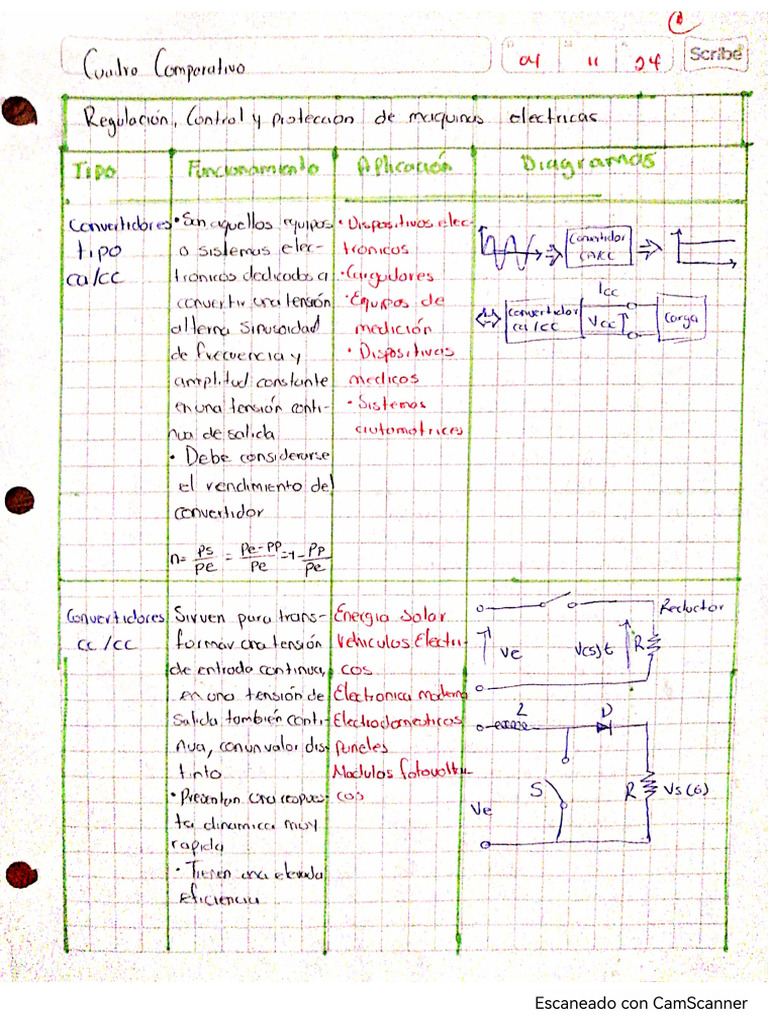 Cuadro Comparativo
04 11 24
Scribe
Regulación, Control y protección de maquinas electricas
Tipo
Funcionamiento
Aplicación
Diagramas
Convertidores
tipo
ca/cc
• Son aquellos equipos
o sistemas elec-
trónicos dedicados a
convertir una tensión
alterna sinusoidad
de frecuencia y
amplitud constante
en una tensión conti-
nua de salida
• Debe considerarse
el rendimiento del
convertidor
n= ps/pe = pe-pp/pe =1- pp/pe
• Dispositivos elec-
trónicos
• Cargadores
• Equipos de
medición
• Dispositivos
medicos
• Sistemas
automotrices
Convertidor
CA/CC
Icc
Convertidor
ca/cc
Vcc
Carga
Convertidores
cc/cc
Sirven para trans-
formar una tensión
de entrada continua,
en una tensión de
salida también conti-
nua, con un valor dis-
tinto
• Presentan una respues-
ta dinamica muy
rapida
• Tienen una elevada
eficiencia
Energia Solar
Vehiculos Electri-
cos
Electronica moderna
Electrodomesticos
Paneles
Modulos fotovoltai-
cos
Reductor
Ve
V(s)t
R
D
S
R
Vs(6)
Ve
Escaneado con CamScanner